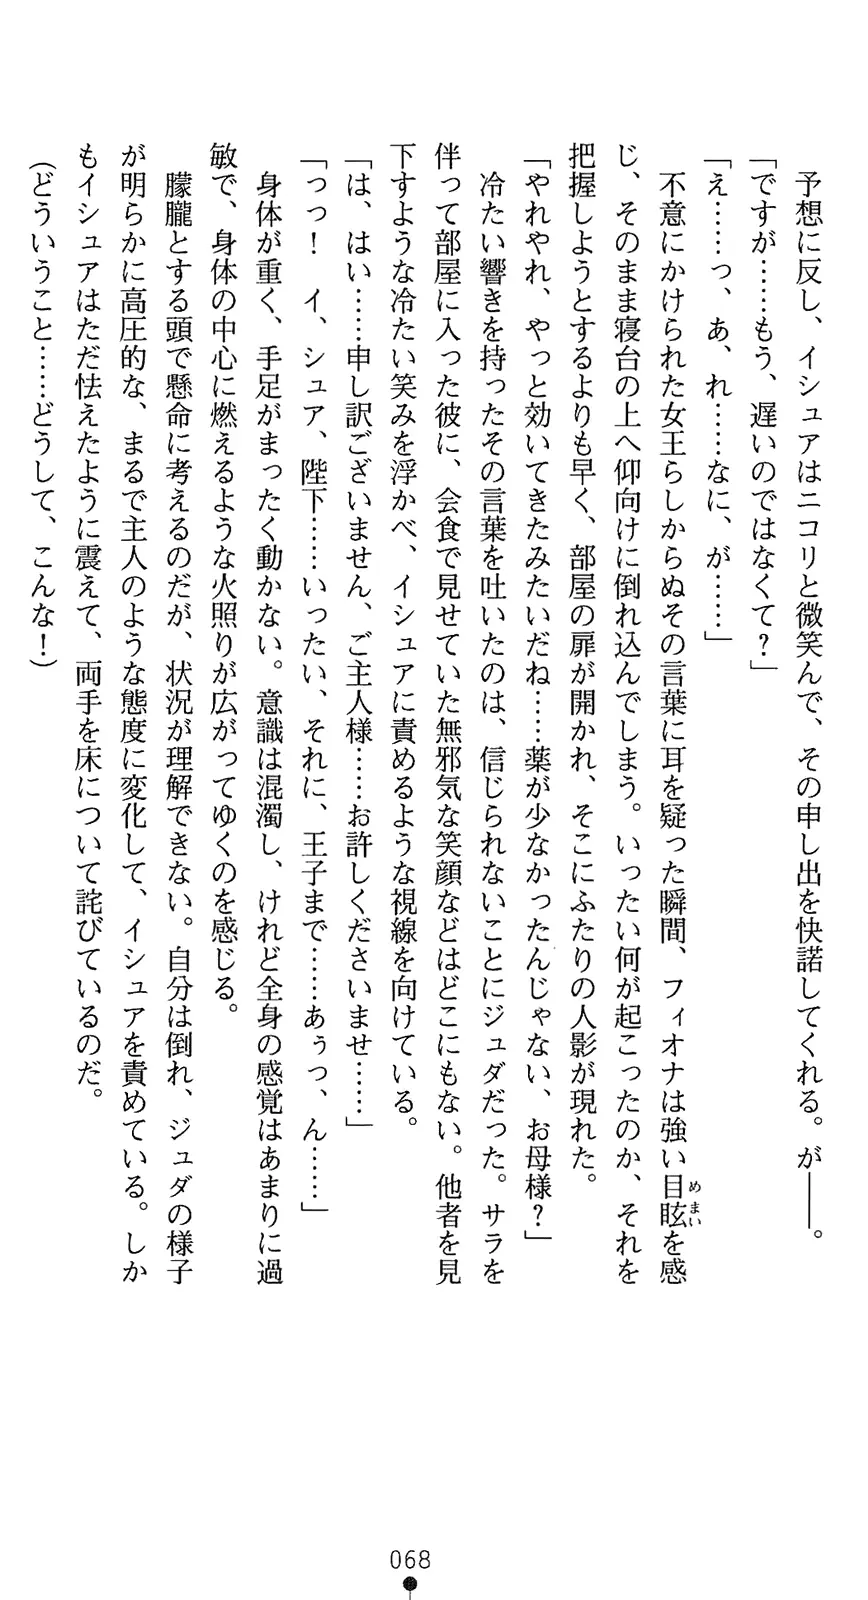 予想に反し、イシュアはニコリと微笑んで、その申し出を快諾してくれる。が――。
「ですが……もう、遅いのではなくて？」
「え……っ、あ、れ……なに、が……」
不意にかけられた女王らしからぬその言葉に耳を疑った瞬間、フィオナは強い目眩を感
めまい
じ、そのまま寝台の上へ仰向けに倒れ込んでしまう。いったい何が起こったのか、それを
把握しようとするよりも早く、部屋の扉が開かれ、そこにふたりの人影が現れた。
「やれやれ、やっと効いてきたみたいだね……薬が少なかったんじゃない、お母様？」
冷たい響きを持ったその言葉を吐いたのは、信じられないことにジュダだった。サラを
伴って部屋に入った彼に、会食で見せていた無邪気な笑顔などはどこにもない。他者を見
下すような冷たい笑みを浮かべ、イシュアに責めるような視線を向けている。
「は、はい……申し訳ございません、ご主人様……お許しくださいませ……」
「っっ！　イ、シュア、陛下……いったい、それに、王子まで……あぅっ、ん……」
身体が重く、手足がまったく動かない。意識は混濁し、けれど全身の感覚はあまりに過
敏で、身体の中心に燃えるような火照りが広がってゆくのを感じる。
朦朧とする頭で懸命に考えるのだが、状況が理解できない。自分は倒れ、ジュダの様子
が明らかに高圧的な、まるで主人のような態度に変化して、イシュアを責めている。しか
もイシュアはただ怯えたように震えて、両手を床について詫びているのだ。
（どういうこと……どうして、こんな！）
068